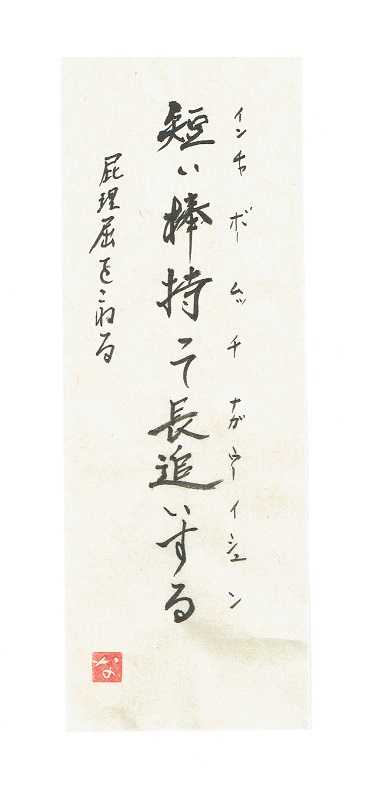 インチャボームッチナガウーイシュン
短い棒持って長追いする
屁理屈をこねる
な